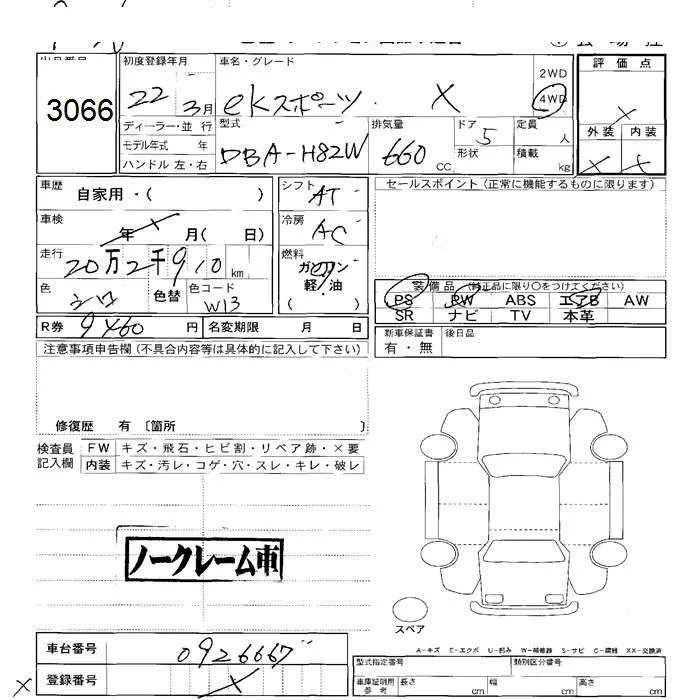 出品番号
3066
初度登録年月
22 3月
車名・グレード
eKスポーツ X
2WD
4WD
評価点
X
外装 内装
X X
ディーラー・並行
モデル年式 年
ハンドル 左・右
型式
DBA-H82W
排気量
660 CC
ドア 5
形状
定員 人
積載 kg
車歴 自家用・( )
シフト AT
車検 年 X 月( 日)
冷房 AC
走行 20万2千910km
燃料 ガソリン
軽・油
( )
色 シロ 色替
色コード W13
R券 9460円
名変期限 月 日
セールスポイント (正常に機能するものに限ります)
装備品 (純正品に限り○をつけてください)
PS PW ABS エアB AW
SR ナビ TV 本革
新車保証書 有・無
後日品
注意事項申告欄 (不具合内容等は具体的に記入して下さい)
修復歴 有 〔箇所
検査員記入欄
FW キズ・飛石・ヒビ割・リペア跡・×要
内装 キズ・汚レ・コゲ・穴・スレ・キレ・破レ
ノークレーム車
スペア
A-キズ E-エクボ U-凹み W-補修跡 S-サビ C-腐蝕 XX-交換済
車台番号 0926667
X 登録番号 X
型式指定番号 類別区分番号
車庫証明用参考 長さ cm 幅 cm 高さ cm